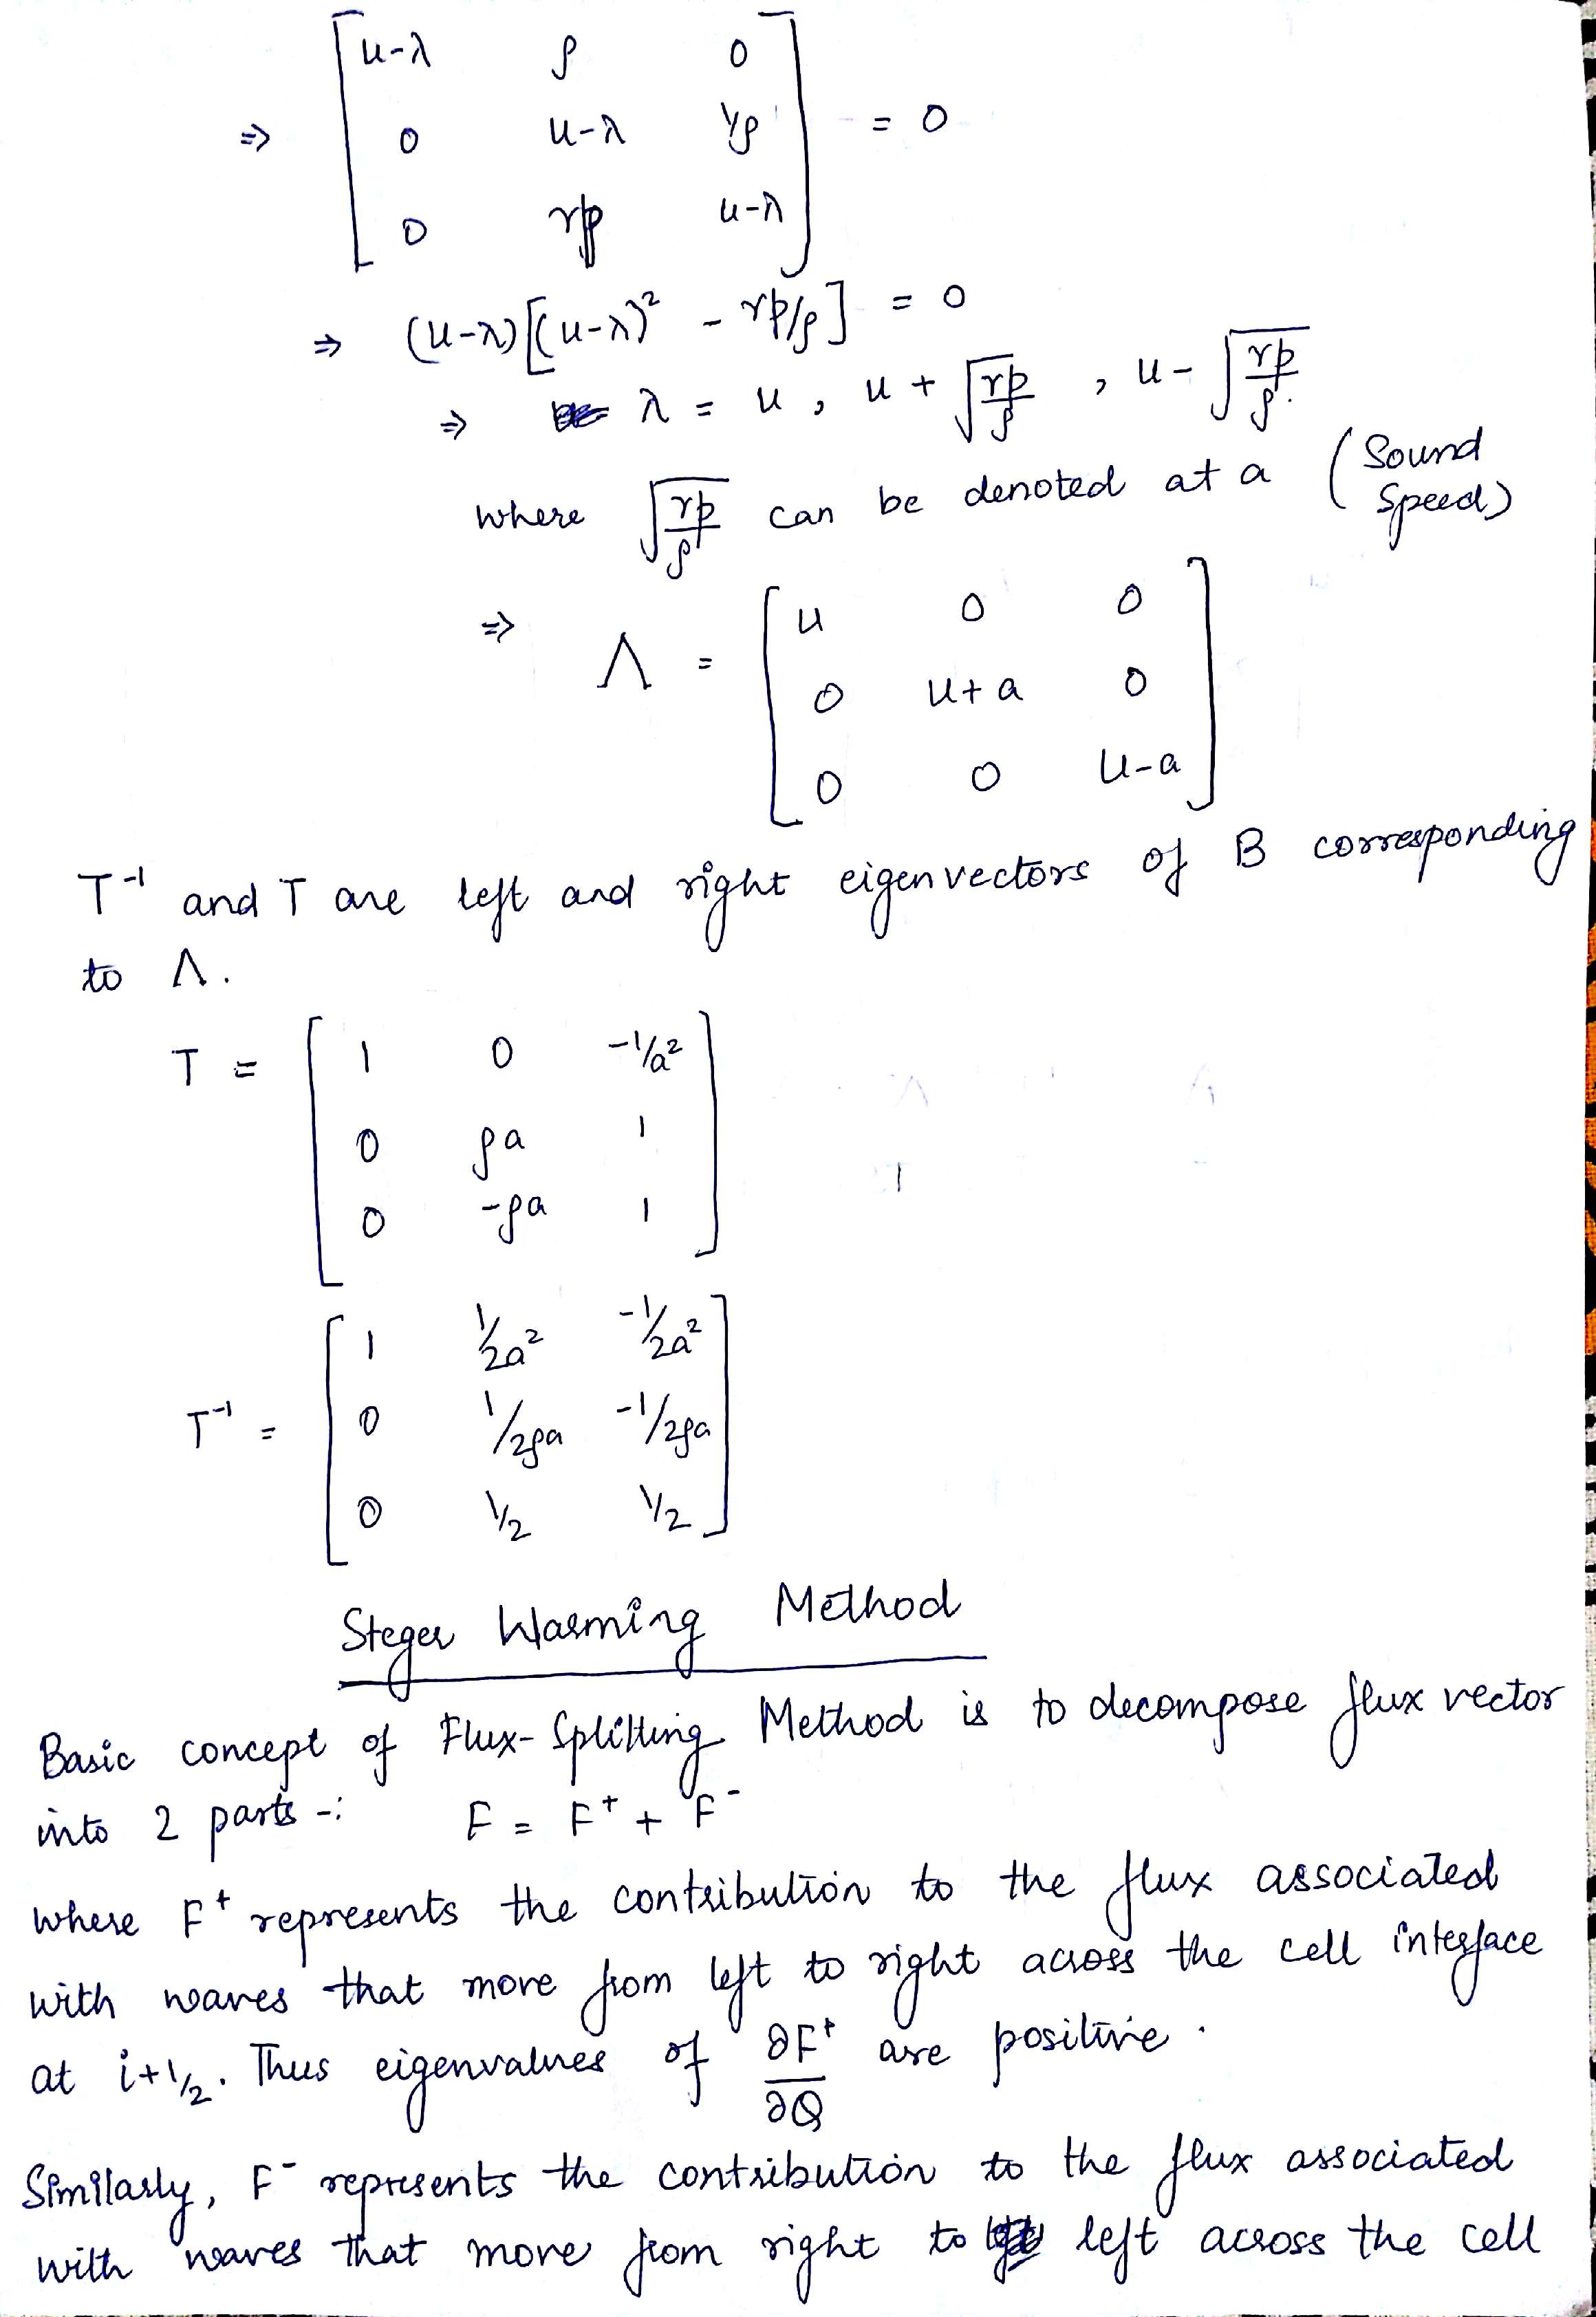 ⇒ [ u-λ ρ 0
0 u-λ 1/ρ
0 γp u-λ ] = 0
⇒ (u-λ)[(u-λ)² - γp/ρ] = 0
⇒ λ = u, u + √(γp/ρ), u - √(γp/ρ).
where √(γp/ρ) can be denoted at a (Sound Speed)
⇒ Λ = [ u 0 0
0 u+a 0
0 0 u-a ]
T⁻¹ and T are left and right eigenvectors of B corresponding
to Λ.
T = [ 1 0 -1/a²
0 ρa 1
0 -ρa 1 ]
T⁻¹ = [ 1 1/2a² -1/2a²
0 1/2ρa -1/2ρa
0 1/2 1/2 ]
Steger Warming Method
Basic concept of Flux-Splitting Method is to decompose flux vector
into 2 parts -: F = F⁺ + F⁻
where F⁺ represents the contribution to the flux associated
with waves that move from left to right across the cell interface
at i+1/2. Thus eigenvalues of ∂F⁺/∂Q are positive.
Similarly, F⁻ represents the contribution to the flux associated
with waves that move from right to left across the cell